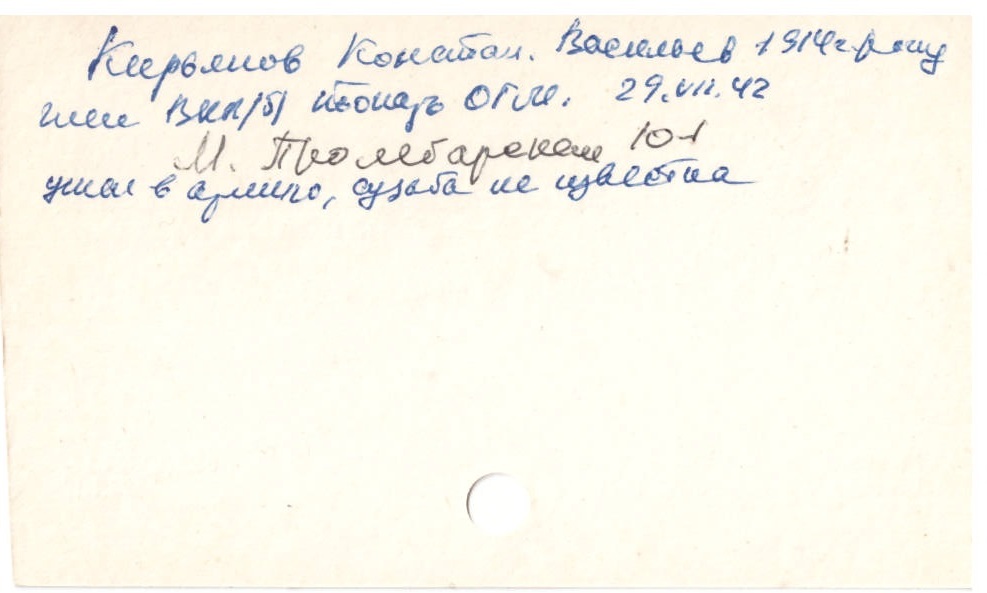 Кирьянов Констан. Васильев 1914г. рожд
член ВКП/б/ ОГМ. 29.VII.42
М. Пролетарская 10-1
ушел в армию, судьба не известна